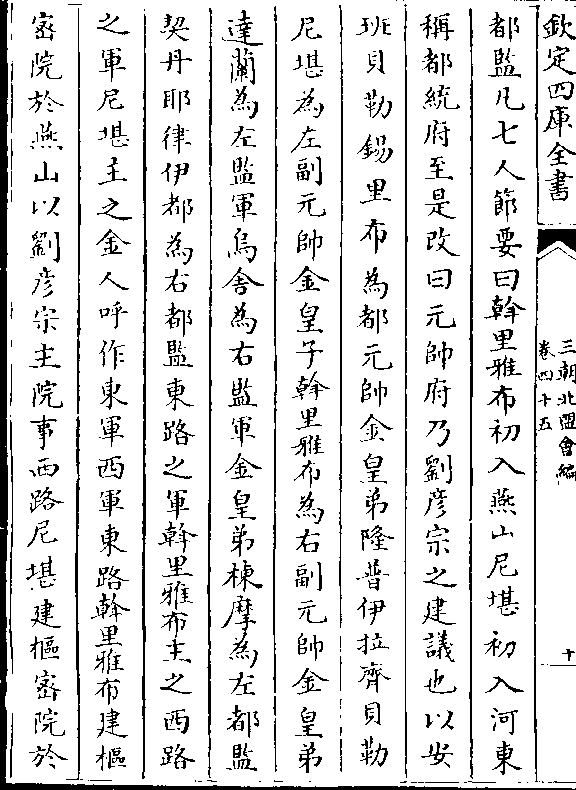 欽定四庫全書
三朝北盟會編
卷四十五
十
都監凡七人節要曰斡里雅布初入燕山尼堪初入河東
稱都統府至是改曰元帥府乃劉彦宗之建議也以安
班貝勒錫里布為都元帥金皇弟隆普伊拉齊貝勒
尼堪為左副元帥金皇子斡里雅布為右副元帥金皇弟
達蘭為左監軍烏舍為右監軍金皇弟棟摩為左都監
契丹耶律伊都為右都監東路之軍斡里雅布主之西路
之軍尼堪主之金人呼作東軍西軍東路斡里雅布建樞
宻院於燕山以劉彦宗主院事西路尼堪建樞宻院於